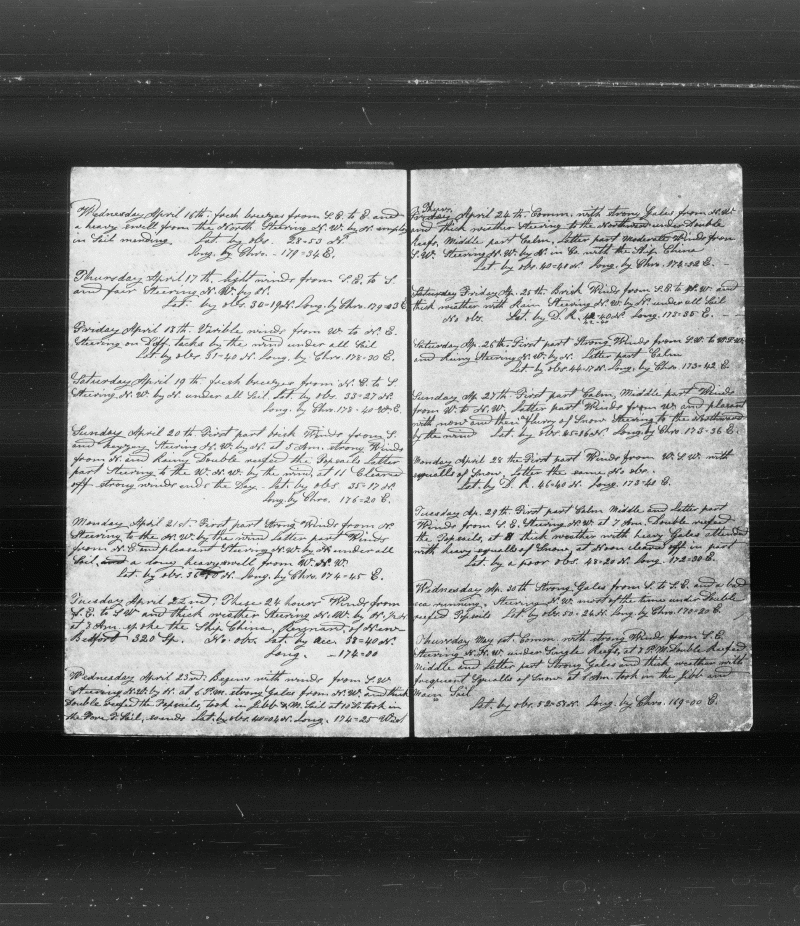 Wednesday April 16th. fresh breezes from S.E. to E. and
a heavy swell from the North Steering N.W. by N. employ
in Sail mending. Lat. by obs. 28-53 N.
Long. by Chro. - 179-34 E.
Thursday April 17th, light winds from S.E. to S.
and fair Steering N.W. by N.
Lat. by obs. 30-19 N. Long. by Chro. 179-03 E
Friday April 18th. Varible winds from W. to N.E.
Steering on Diff. tacks by the wind under all Sail
Lat by obs 31-40 N. Long. by Chro. 178-30 E.
Saturday April 19th. fresh breezes from N.E. to S.
Steering N.W. by N. under all Sail, Lat. by obs. 33-27 N.
Long. by Chro. 178-40 E.
Sunday April 20th First part brick Winds from S.
and foggy, Steering N.W. by N. at 5 A.m. strong Winds
from N. and Rainy Double reefed the Topsails Latter
part Steering to the W.N.W. by the wind, at 11 Cleared
off strong winds ends the Day. Lat. by obs. 35-17 N.
Long. by Chro. 176-20 E.
Monday April 21st. First part Strong Winds from N.
Steering to the N.W. by the wind Latter part Winds
from N.E. and pleasant Steering N.W. by N. under all
Sail, and a heavy swell from W.N.W.
Lat. by obs. N. Long. by Chro. 174-45 E.
Tuesday April 22nd. These 24 hours Winds from
S.E. to S.W. and thick weather Steering N.W. by N.
at 3 A.m. spoke the Ship China, of New
Bedfort 320 Sp No obs. Lat. by acc. 38-40 N.
Long. - 174-00
Wednesday April 23rd. Begins with winds from S.W.
Steering N.W. by N. at 6 P.M. strong Gales from N.W. and thick
Double reefed the Topsails, took in Jibb & M. Sail at 10 took in
the Fore T. Sail, so ends Lat. by obs. 40-04 N. Long. 174-25
Thurs.
Friday April 24th. Comm. with strong Gales from N.W.
and thick weather Steering to the Northward under Double
Reefs, Middle part Calm, Latter part moderate Winds from
S.W. Steering N.W. by N. in Co. with the Ship China.
Lat by obs. 40-41 N. Long. by Chro. 174-32 E. -
Saturday Friday Ap. 25th Brick Winds from S.E. to N.W. and
thick weather with Rain Steering N.W. by N. under all Sail
No obs. Lat. by D.R. 42-40 N. Long. 173-35 E. - -
Saturday Ap. 26th First part Strong Winds from S.W. to W.S.W.
and Rainy Steering N.W. by N. Latter part Calm
Lat by obs. 44-17 N. Long. by Chro. 173-42 E.
Sunday Ap. 27th First part Calm, Middle part Winds
from W. to N.W. Latter part Winds from W. and pleasant
with now and then flurry of Snow Steering to the Northward
by the wind Lat. by obs 45-16 N. Long. by Chro. 173-36 E.
Monday April 28th First part Winds from W.S.W. with
squalls of Snow, Latter the same No obs.
Lat. by D.R. 46-40 N. Long. 173-40 E.
Tuesday Ap. 29th First part Calm Middle and Latter part
Winds from S.E. Steering N.W. at 7 A.m. Double reefed
the Topsails, at 8 thick weather with heavy Gales attended
with heavy squalls of Snow, at Noon cleared off in part
Lat. by a poor obs. 48-20 N. Long. 172-30 E.
Wednesday Ap. 30th Strong Gales from S. to S.E. and a bad
sea running. Steering N.W. most of the time under Double
reefed Topsails Lat. by obs. 50-24 N. Long. by Chro. 170-20 E.
Thursday May 1st. Comm. with strong Winds from S.E.
Steering N.N.W. under Single Reefs, at 7 P.M. Double Reefed
Middle and Latter part Strong Gales and thick weather with
frequent Squalls of Snow at 8 A.m. took in the Jibb and
Main Sail
Lat. by obs. 52-58 N. Long. by Chro. 169-00 E.